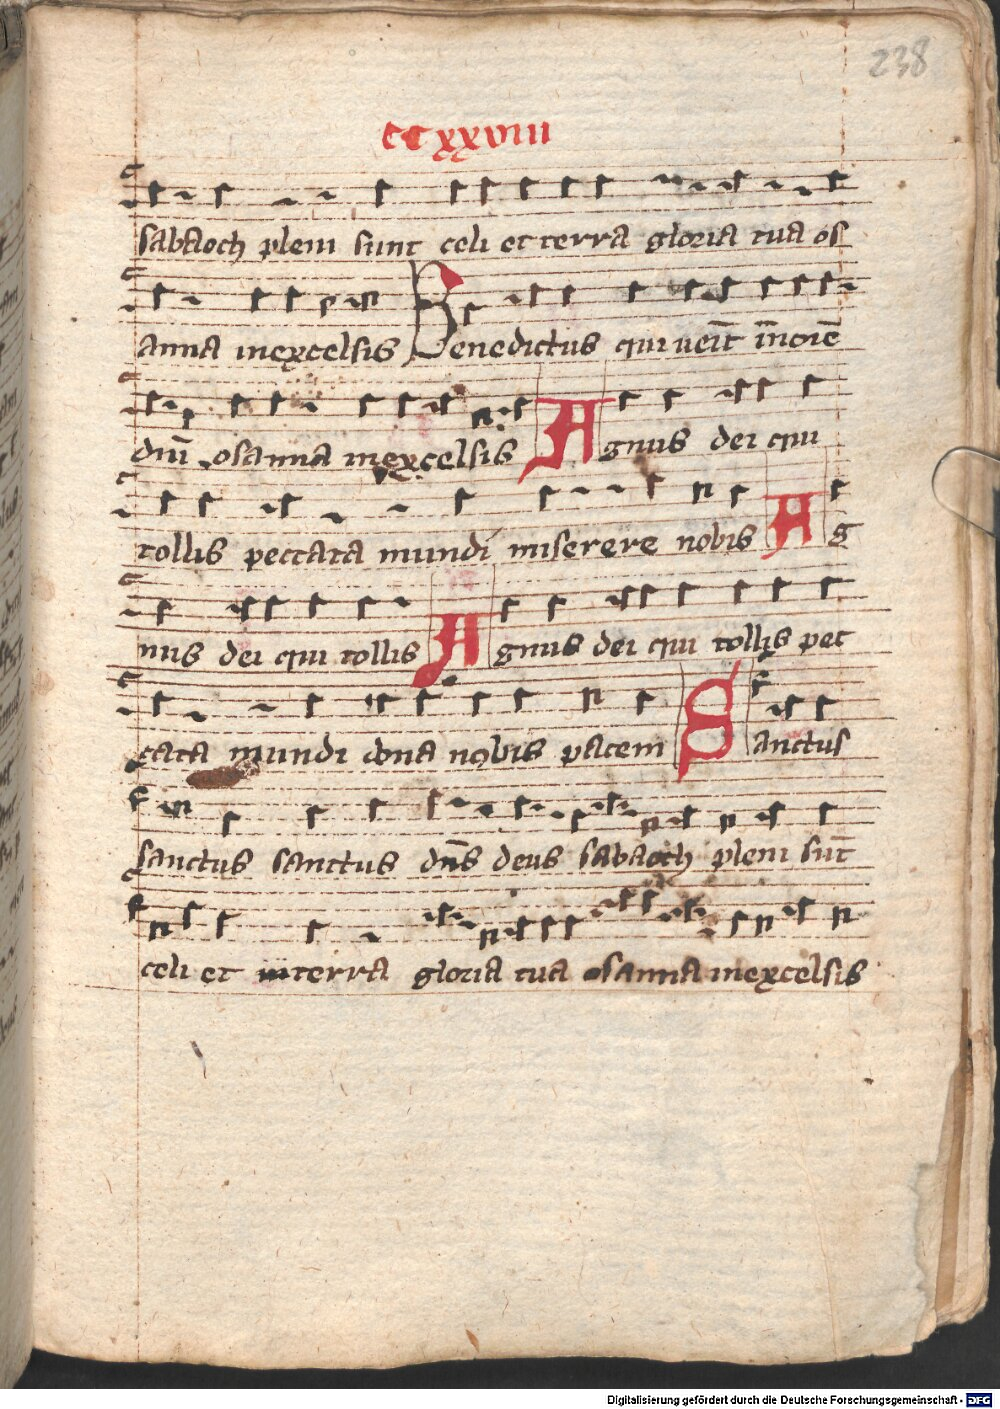 238
ccxxviii
sabaoth pleni sunt celi et terra gloria tua os
anna in excelsis Benedictus qui veīt in noīe
dnī osanna in excelsis Agnus dei qui
tollis peccata mundi miserere nobis Ag
nus dei qui tollis Agnus dei qui tollis pec
cata mundi dona nobis pacem Sanctus
sanctus sanctus dn̄s deus sabaoth pleni sūt
celi et terra gloria tua osanna in excelsis
Digitalisierung gefördert durch die Deutsche Forschungsgemeinschaft - DFG